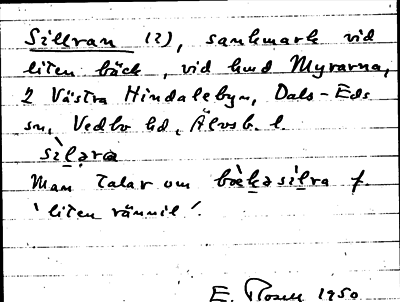 Sillran (2), sankmark vid
liten bäck, vid hmd Myrarna,
2 Västra Hindalebyn, Dals-Eds
sn, Vedbo hd, Älvsb. l.
sìl̠ạra
Man talar om bœ̀k̠asìl̠ra f.
'liten rännil'.
E. Rosell 1950